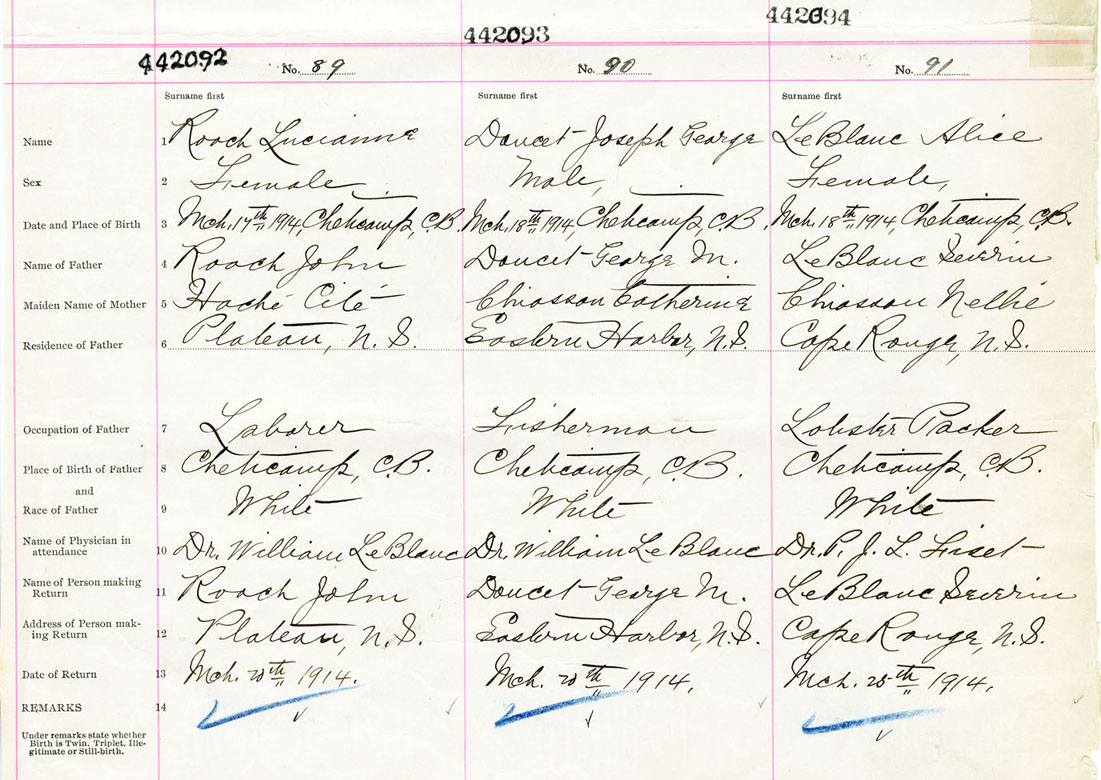 442092 442093 442094
No. 89 No. 90 No. 91
Surname first Surname first Surname first
Name 1 Roach Lucianne Doucet Joseph George LeBlanc Alice
Sex 2 Female Male, Female,
Date and Place of Birth 3 Mch. 17th 1914, Cheticamp, C.B. Mch. 18th 1914, Cheticamp, C.B. Mch. 18th 1914, Cheticamp, C.B.
Name of Father 4 Roach John Doucet George M. LeBlanc Severin
Maiden Name of Mother 5 Haché Cité Chiasson Catherine Chiasson Nellie
Residence of Father 6 Plateau, N.S. Eastern Harbor, N.S. Cape Rouge, N.S.
Occupation of Father 7 Laborer Fisherman Lobster Packer
Place of Birth of Father 8 Cheticamp, C.B. Cheticamp, C.B. Cheticamp, C.B.
and
Race of Father 9 White White White
Name of Physician in
attendance 10 Dr. William LeBlanc Dr. William LeBlanc Dr. P. J. L. Fiset
Name of Person making
Return 11 Roach John Doucet George M. LeBlanc Severin
Address of Person mak-
ing Return 12 Plateau, N.S. Eastern Harbor, N.S. Cape Rouge, N.S.
Date of Return 13 Mch. 20th 1914. Mch. 20th 1914. Mch. 25th 1914.
REMARKS 14
Under remarks state whether
Birth is Twin, Triplet, Ille-
gitimate or Still-birth.